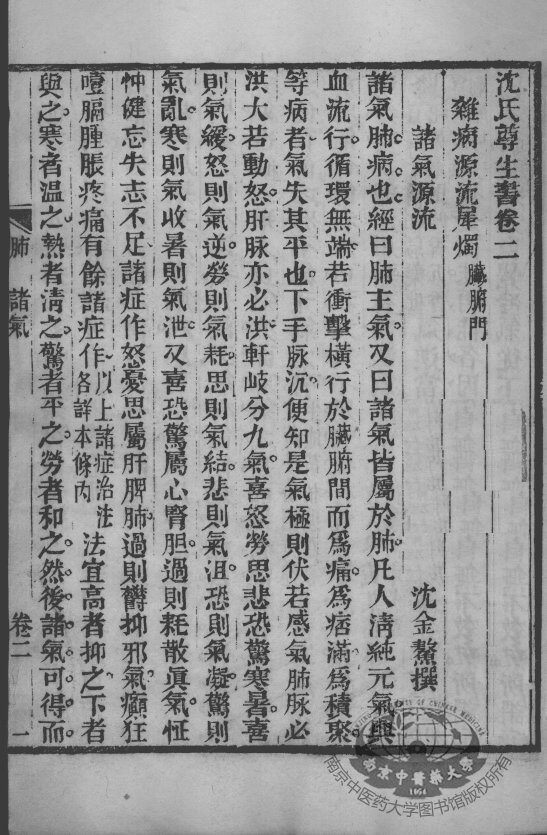 沈氏尊生書卷二
雜病源流犀燭 臟腑門
沈金鰲撰
諸氣源流
諸氣肺病也經曰肺主氣又曰諸氣皆屬於肺凡人清純元氣與
血流行循環無端若衝擊橫行於臟腑間而為痛為痞滿為積聚
等病者氣失其平也下手脉沉便知是氣極則伏若感氣肺脉必
洪大若動怒肝脉亦必洪軒岐分九氣喜怒勞思悲恐驚寒暑喜
則氣緩怒則氣逆勞則氣耗思則氣結悲則氣沮恐則氣凝驚則
氣亂寒則氣收暑則氣泄又喜恐驚屬心腎胆過則耗散眞氣怔
忡健忘失志不足諸症作怒憂思屬肝脾肺過則鬱抑邪氣癲狂
噎膈腫脹疼痛有餘諸症作以上諸症治法各詳本條内法宜高者抑之下者
與之寒者温之熱者清之驚者平之勞者和之然後諸氣可得而
肺 諸氣
卷二
一
南京中醫藥大學
1954
南京中医药大学图书馆版权所有